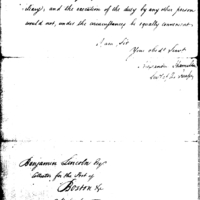 diary; and the execution of the duty by any other person
would not, under the circumstances be equally convenient.
I am Sir
Your obedt Servt
Alexander Hamilton
Secy of the Treasy
Benjamin Lincoln Esqr
Collector for the Port of
Boston